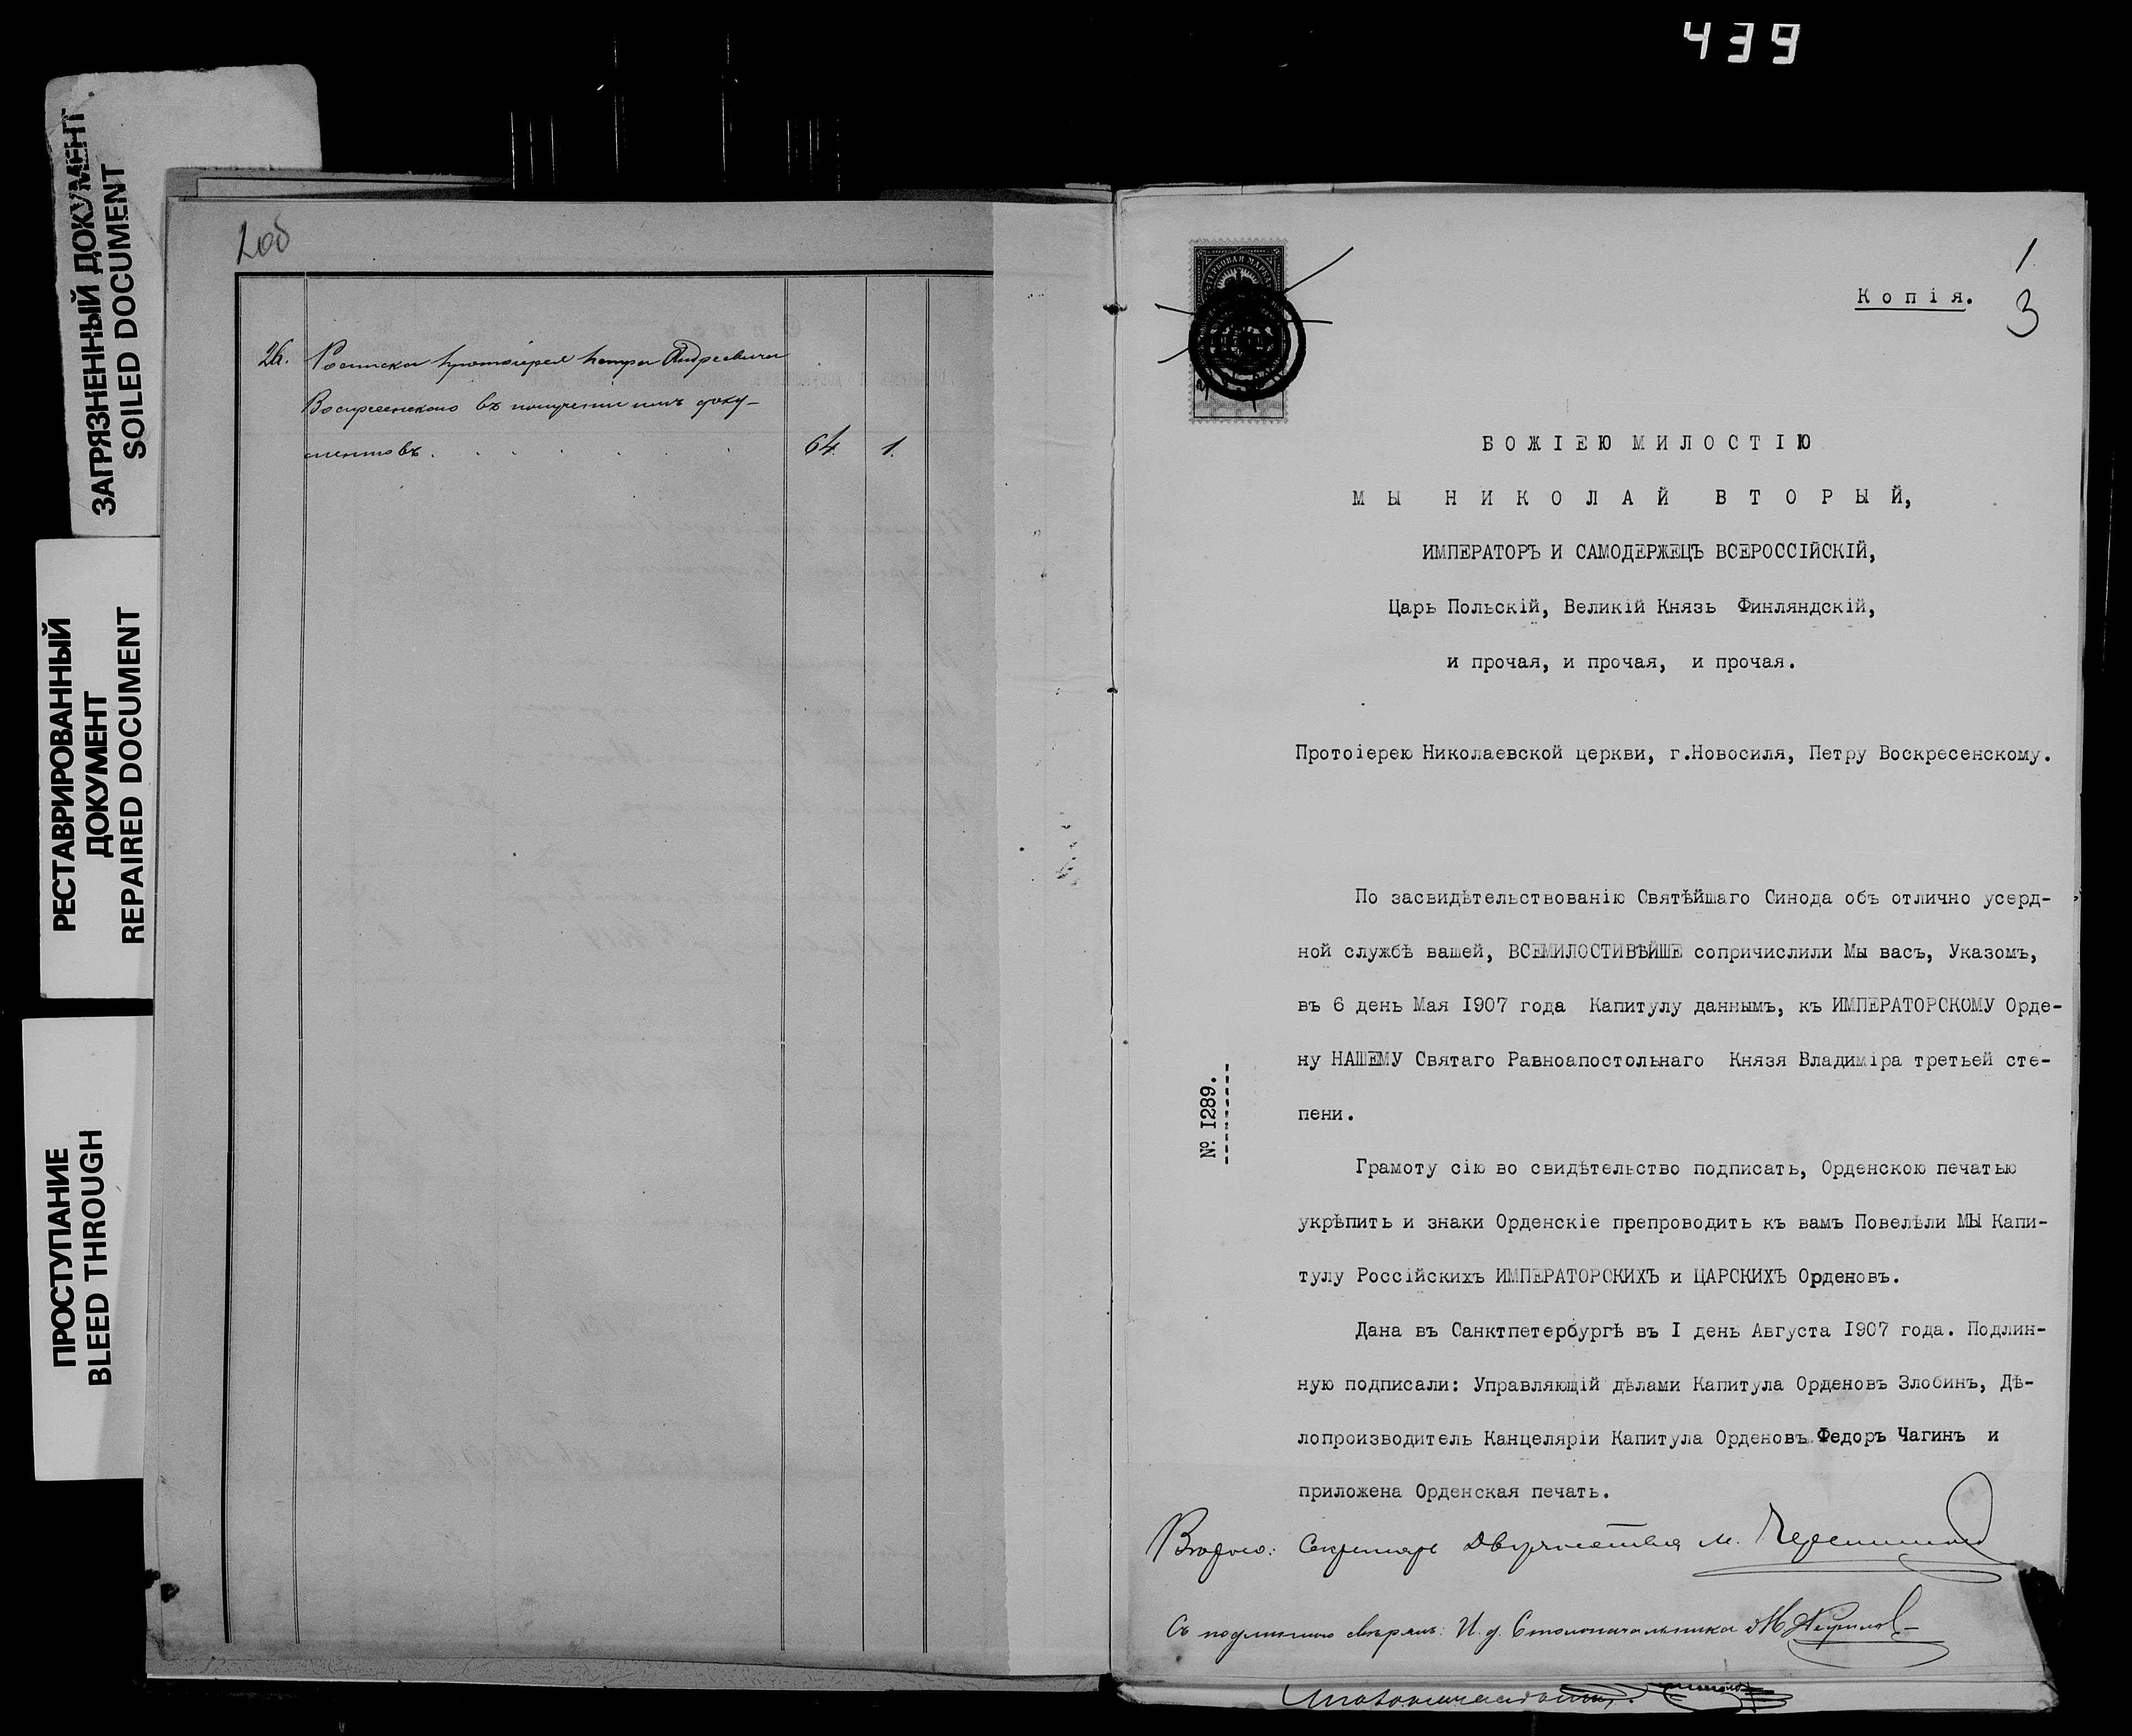 439
ЗАГРЯЗНЕННЫЙ ДОКУМЕНТ
SOILED DOCUMENT
РЕСТАВРИРОВАННЫЙ
ДОКУМЕНТ
REPAIRED DOCUMENT
ПРОСТУПАНИЕ
BLEED THROUGH
2об
26. Росписка протоіерея Петра Андреевича
Воскресенскаго въ полученіи имъ доку-
ментовъ. 64. 1.
1
3
Копія.
ГЕРБОВАЯ МАРКА
БОЖІЕЮ МИЛОСТІЮ
МЫ НИКОЛАЙ ВТОРЫЙ,
ИМПЕРАТОРЪ И САМОДЕРЖЕЦЪ ВСЕРОССІЙСКІЙ,
Царь Польскій, Великій Князь Финляндскій,
и прочая, и прочая, и прочая.
Протоіерею Николаевской церкви, г.Новосиля, Петру Воскресенскому.
По засвидѣтельствованію Святѣйшаго Синода объ отлично усерд-
ной службѣ вашей, ВСЕМИЛОСТИВѢЙШЕ сопричислили Мы васъ, Указомъ,
въ 6 день Мая 1907 года Капитулу даннымъ, къ ИМПЕРАТОРСКОМУ Орде-
ну НАШЕМУ Святаго Равноапостольнаго Князя Владиміра третьей сте-
пени.
№ 1289.
Грамоту сію во свидѣтельство подписать, Орденскою печатью
укрѣпить и знаки Орденскіе препроводить къ вамъ Повелѣли МЫ Капи-
тулу Россійскихъ ИМПЕРАТОРСКИХЪ и ЦАРСКИХЪ Орденовъ.
Дана въ Санктпетербургѣ въ I день Августа 1907 года. Подлин-
ную подписали: Управляющій дѣлами Капитула Орденовъ Злобинъ, Дѣ-
лопроизводитель Канцеляріи Капитула Орденовъ Федоръ Чагинъ и
приложена Орденская печать.
Вѣрно: Секретарь Дворянства М.
Съ подлиннымъ свѣрялъ: И. д. Столоначальника